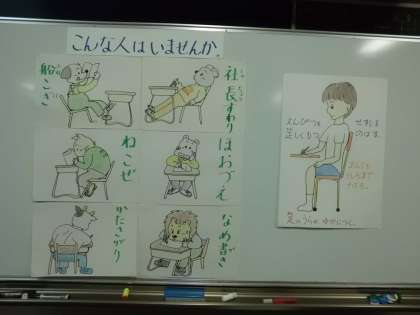 こんな人はいませんか。
船こぎ
社長すわり
ねこぜ
ほおづえ
かたさがり
なめ書き
えんぴつを
正しくもつ
せすじを
のばす。
足のうらはゆかにつく。